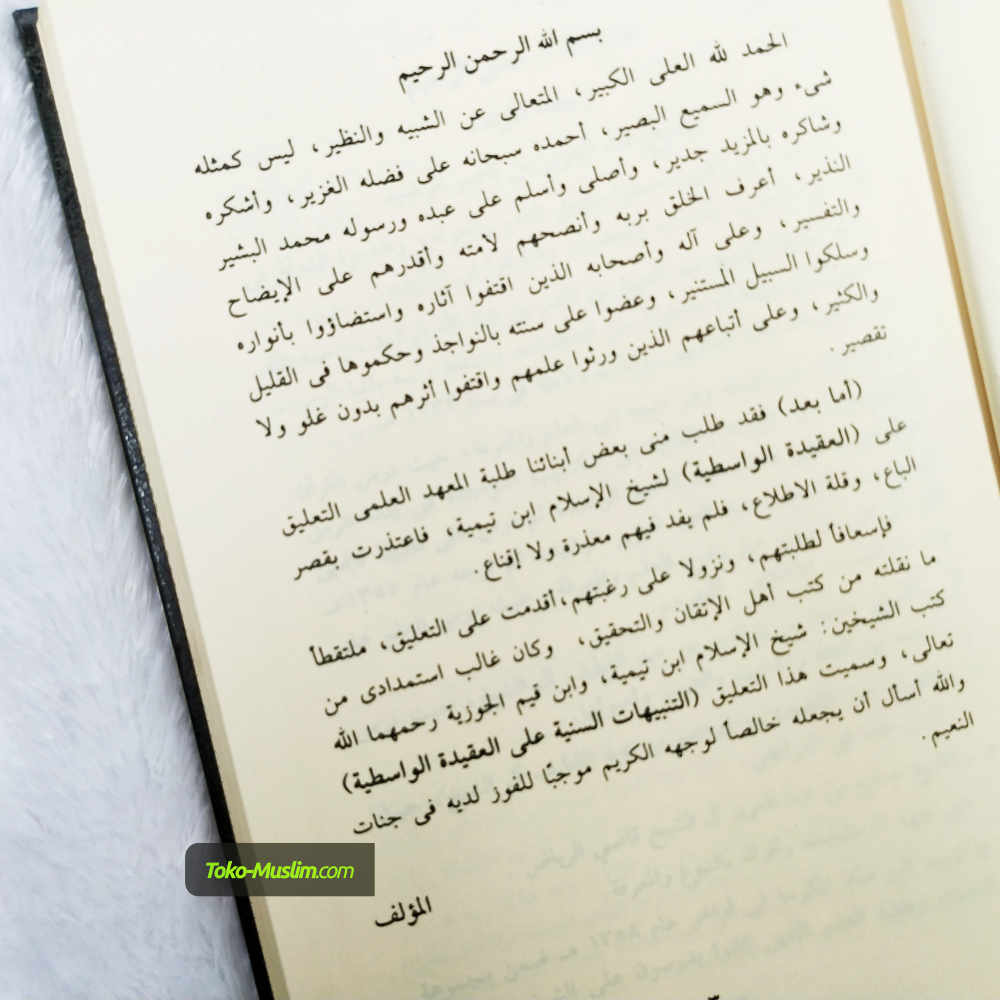 بسم الله الرحمن الرحيم
الحمد لله العلى الكبير، المتعالى عن الشبيه والنظير، ليس كمثله
شىء وهو السميع البصير، أحمده سبحانه على فضله الغزير، وأشكره
وشاكره بالمزيد جدير، وأصلى وأسلم على عبده ورسوله محمد البشير
النذير، أعرف الخلق بربه وأنصحهم لأمته وأقدرهم على الإيضاح
والتفسير، وعلى آله وأصحابه الذين اقتفوا آثاره واستضاؤوا بأنواره
وسلكوا السبيل المستنير، وعضوا على سنته بالنواجذ وحكموها فى القليل
والكثير، وعلى أتباعهم الذين ورثوا علمهم واقتفوا أثرهم بدون غلو ولا
تقصير.
(أما بعد) فقد طلب منى بعض أبنائنا طلبة المعهد العلمى التعليق
على (العقيدة الواسطية) لشيخ الإسلام ابن تيمية، فاعتذرت بقصر
الباع، وقلة الاطلاع، فلم يفد فيهم معذرة ولا إقناع.
فإسعافاً لطلبتهم، ونزولا على رغبتهم، أقدمت على التعليق، ملتقطاً
ما نقلته من كتب أهل الإتقان والتحقيق، وكان غالب استمدادى من
كتب الشيخين: شيخ الإسلام ابن تيمية، وابن قيم الجوزية رحمهما الله
تعالى، وسميت هذا التعليق (التنبيهات السنية على العقيدة الواسطية)
والله أسأل أن يجعله خالصاً لوجهه الكريم موجبًا للفوز لديه فى جنات
النعيم.
المؤلف
Toko-Muslim.com